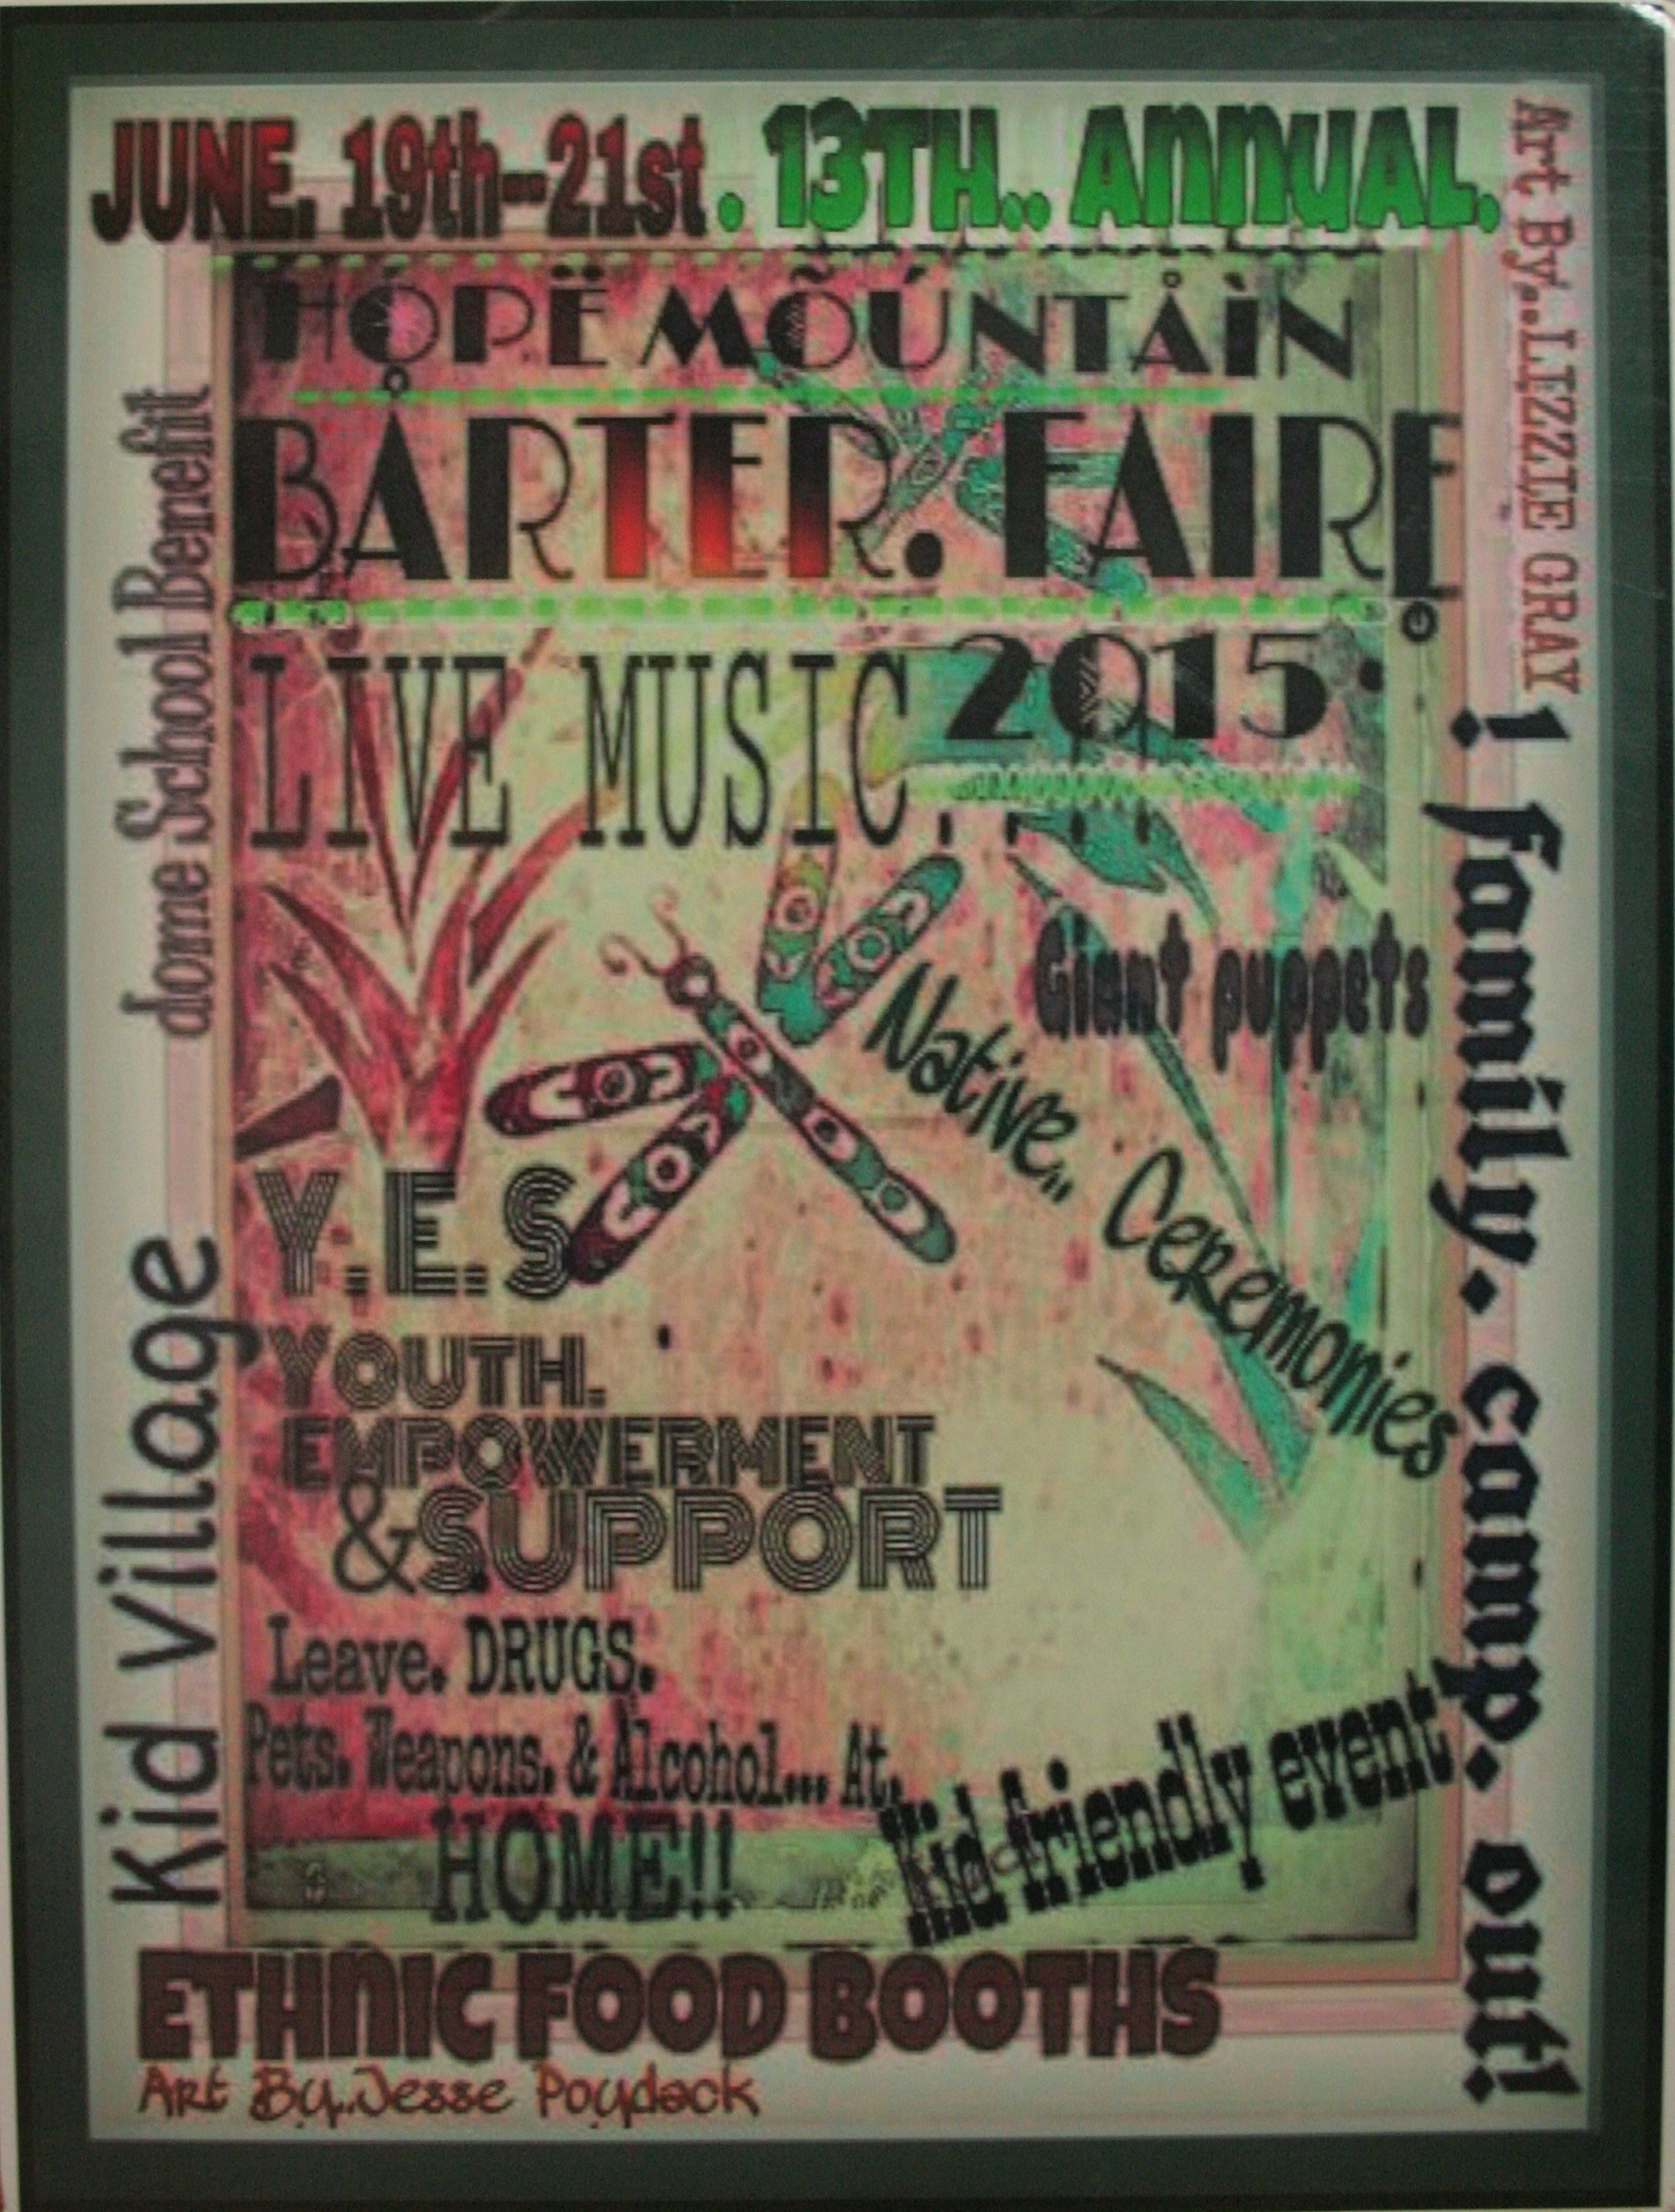 JUNE. 19th--21st . 13TH.. ANNUAL.
HÓPË MÕÚNTÅÌN
BÅRTER. FAIRE
LIVE MUSIC....
2015.
Giant puppets
Native.. Ceremonies
Y.E.S
YOUTH.
EMPOWERMENT
&SUPPORT
Leave. DRUGS.
Pets. Weapons. & Alcohol... At.
HOME!!
Kid friendly event
ETHNIC FOOD BOOTHS
Art By..Jesse Poydack
dome School Benefit
Kid Village
Art By..LIZZIE GRAY
! family. camp. out!